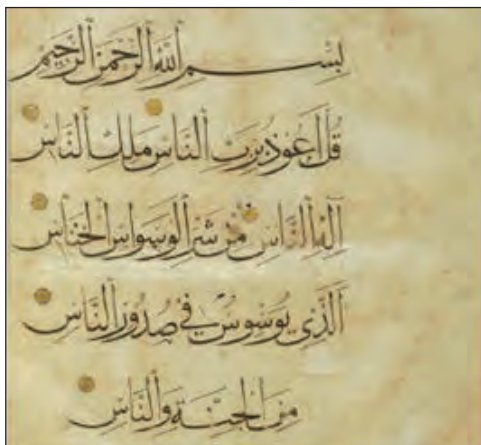 بِسْمِ ٱللَّهِ ٱلرَّحْمَنِ ٱلرَّحِيمِ
قُلْ أَعُوذُ بِرَبِّ ٱلنَّاسِ مَلِكِ ٱلنَّاسِ
إِلَهِ ٱلنَّاسِ مِنْ شَرِّ ٱلْوَسْوَاسِ ٱلْخَنَّاسِ
ٱلَّذِي يُوَسْوِسُ فِي صُدُورِ ٱلنَّاسِ
مِنَ ٱلْجِنَّةِ وَٱلنَّاسِ